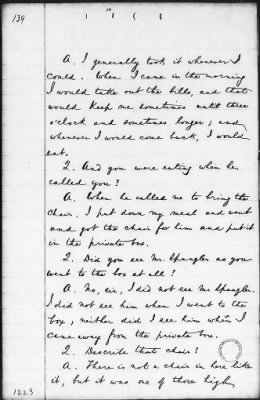 139
A. I generally took it whenever I
could. When I came in the morning
I would take out the bills, and that
would keep me sometimes until three
o'clock and sometimes longer; and
whenever I would come back, I would
eat.
Q. And you were eating when he
called you?
A. When he called me to bring the
chair. I put down my meal and went
and got the chair for him and put it
in the private box.
Q. Did you see Mr. Spangler as you
went to the box at all?
A. No, sir, I did not see Mr Spangler.
I did not see him when I went to the
box, neither did I see him when I
came away from the private box.
Q. Describe that chair?
A. There is not a chair in here like
it, but it was one of those high
1223